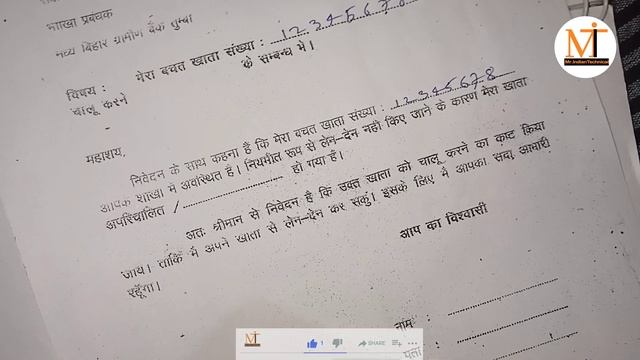 शाखा प्रबंधक
मध्य बिहार ग्रामीण बैंक तुम्बा
विषय : मेरा बचत खाता संख्या : 12345678 के सम्बन्ध में।
चालू करने
महाशय,
निवेदन के साथ कहना है कि मेरा बचत खाता संख्या : 12345678
आपके शाखा में अवस्थित है। नियमीत रूप से लेन-देन नहीं किए जाने के कारण मेरा खाता
अपरिचालित / ........................ हो गया है।
अतः श्रीमान से निवेदन है कि उक्त खाता को चालू करने का कष्ट किया
जाय। ताकि मैं अपने खाता से लेन-देन कर सकुं। इसके लिए मैं आपका सदा आभारी
रहूँगा।
आप का विश्वासी
नाम :
पता :
MT
Mr.IndianTechnical
MT
1
SHARE